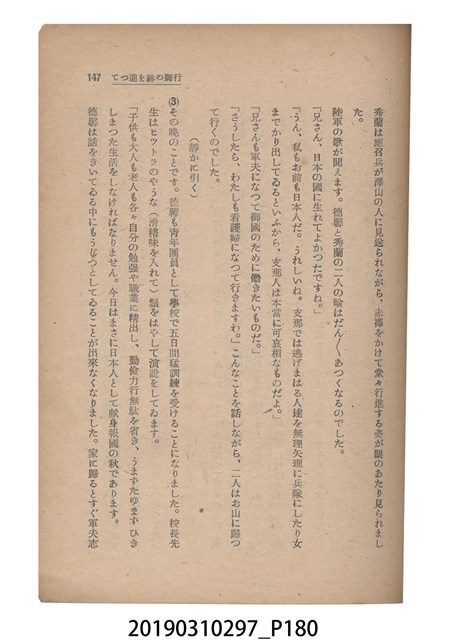 147　行御の跡を追つて
秀蘭は應召兵が澤山の人に見送られながら、赤襷をかけて堂々行進する姿が眼のあたり見られまし
た。
陸軍の歌が聞えます。德馨と秀蘭の二人の瞼はだん〳〵あつくなるのでした。
「兄さん、日本の國に生れてよかつたですね。」
「うん、私もお前も日本人だ。うれしいね。支那では逃げまはる人達を無理矢理に兵隊にしたり女
までかり出してゐるといふから、支那人は本當に可哀相なものだよ。」
「兄さんも軍夫になつて御國のために働きたいものだ。」
「さうしたら、わたしも看護婦になつて行きますわ。」こんなことを話しながら、二人はお山に歸つ
て行くのでした。
（靜かに引く）
(3)その晩のことです。德馨も靑年團員として學校で五日間猛訓練を受けることになりました。校長先
生はヒットラのやうな（滑稽味を入れて）鬚をはやして演說をしてゐます。
「子供も大人も老人も各々自分の勉强や職業に精出し、勤儉力行無駄を省き、うまずたゆまずひき
しまつた生活をしなければなりません。今日はまさに日本人として献身報國の秋であります。
德馨は話をきいてゐる中にもうじつとしてゐることが出來なくなりました。家に歸るとすぐ軍夫志
20190310297_P180